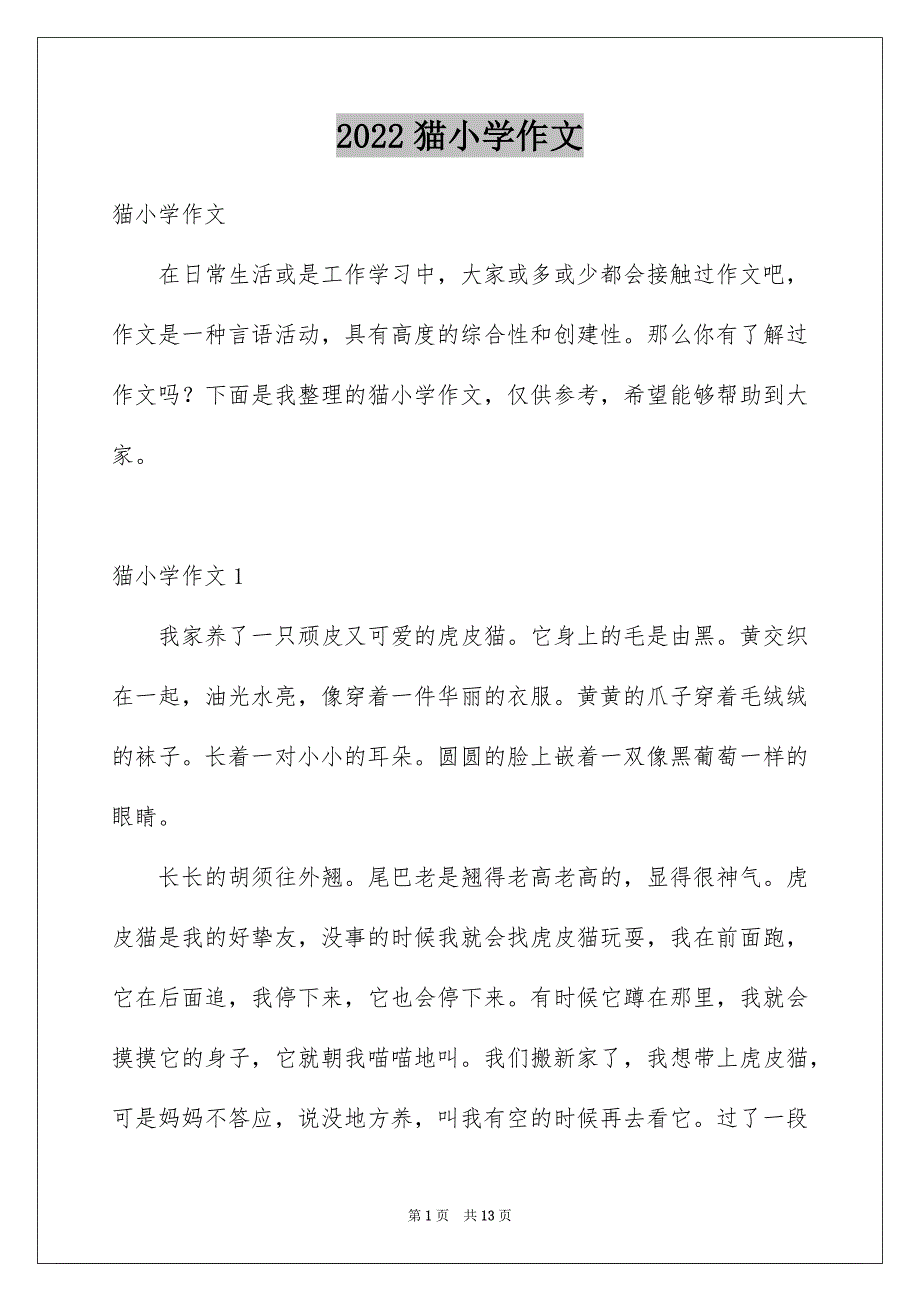 2022猫小学作文
猫小学作文
在日常生活或是工作学习中，大家或多或少都会接触过作文吧，
作文是一种言语活动，具有高度的综合性和创建性。那么你有了解过
作文吗？下面是我整理的猫小学作文，仅供参考，希望能够帮助到大
家。
猫小学作文1
我家养了一只顽皮又可爱的虎皮猫。它身上的毛是由黑。黄交织
在一起，油光水亮，像穿着一件华丽的衣服。黄黄的爪子穿着毛绒绒
的袜子。长着一对小小的耳朵。圆圆的脸上嵌着一双像黑葡萄一样的
眼睛。
长长的胡须往外翘。尾巴老是翘得老高老高的，显得很神气。虎
皮猫是我的好挚友，没事的时候我就会找虎皮猫玩耍，我在前面跑，
它在后面追，我停下来，它也会停下来。有时候它蹲在那里，我就会
摸摸它的身子，它就朝我喵喵地叫。我们搬新家了，我想带上虎皮猫，
可是妈妈不答应，说没地方养，叫我有空的时候再去看它。过了一段
第1页 共13页